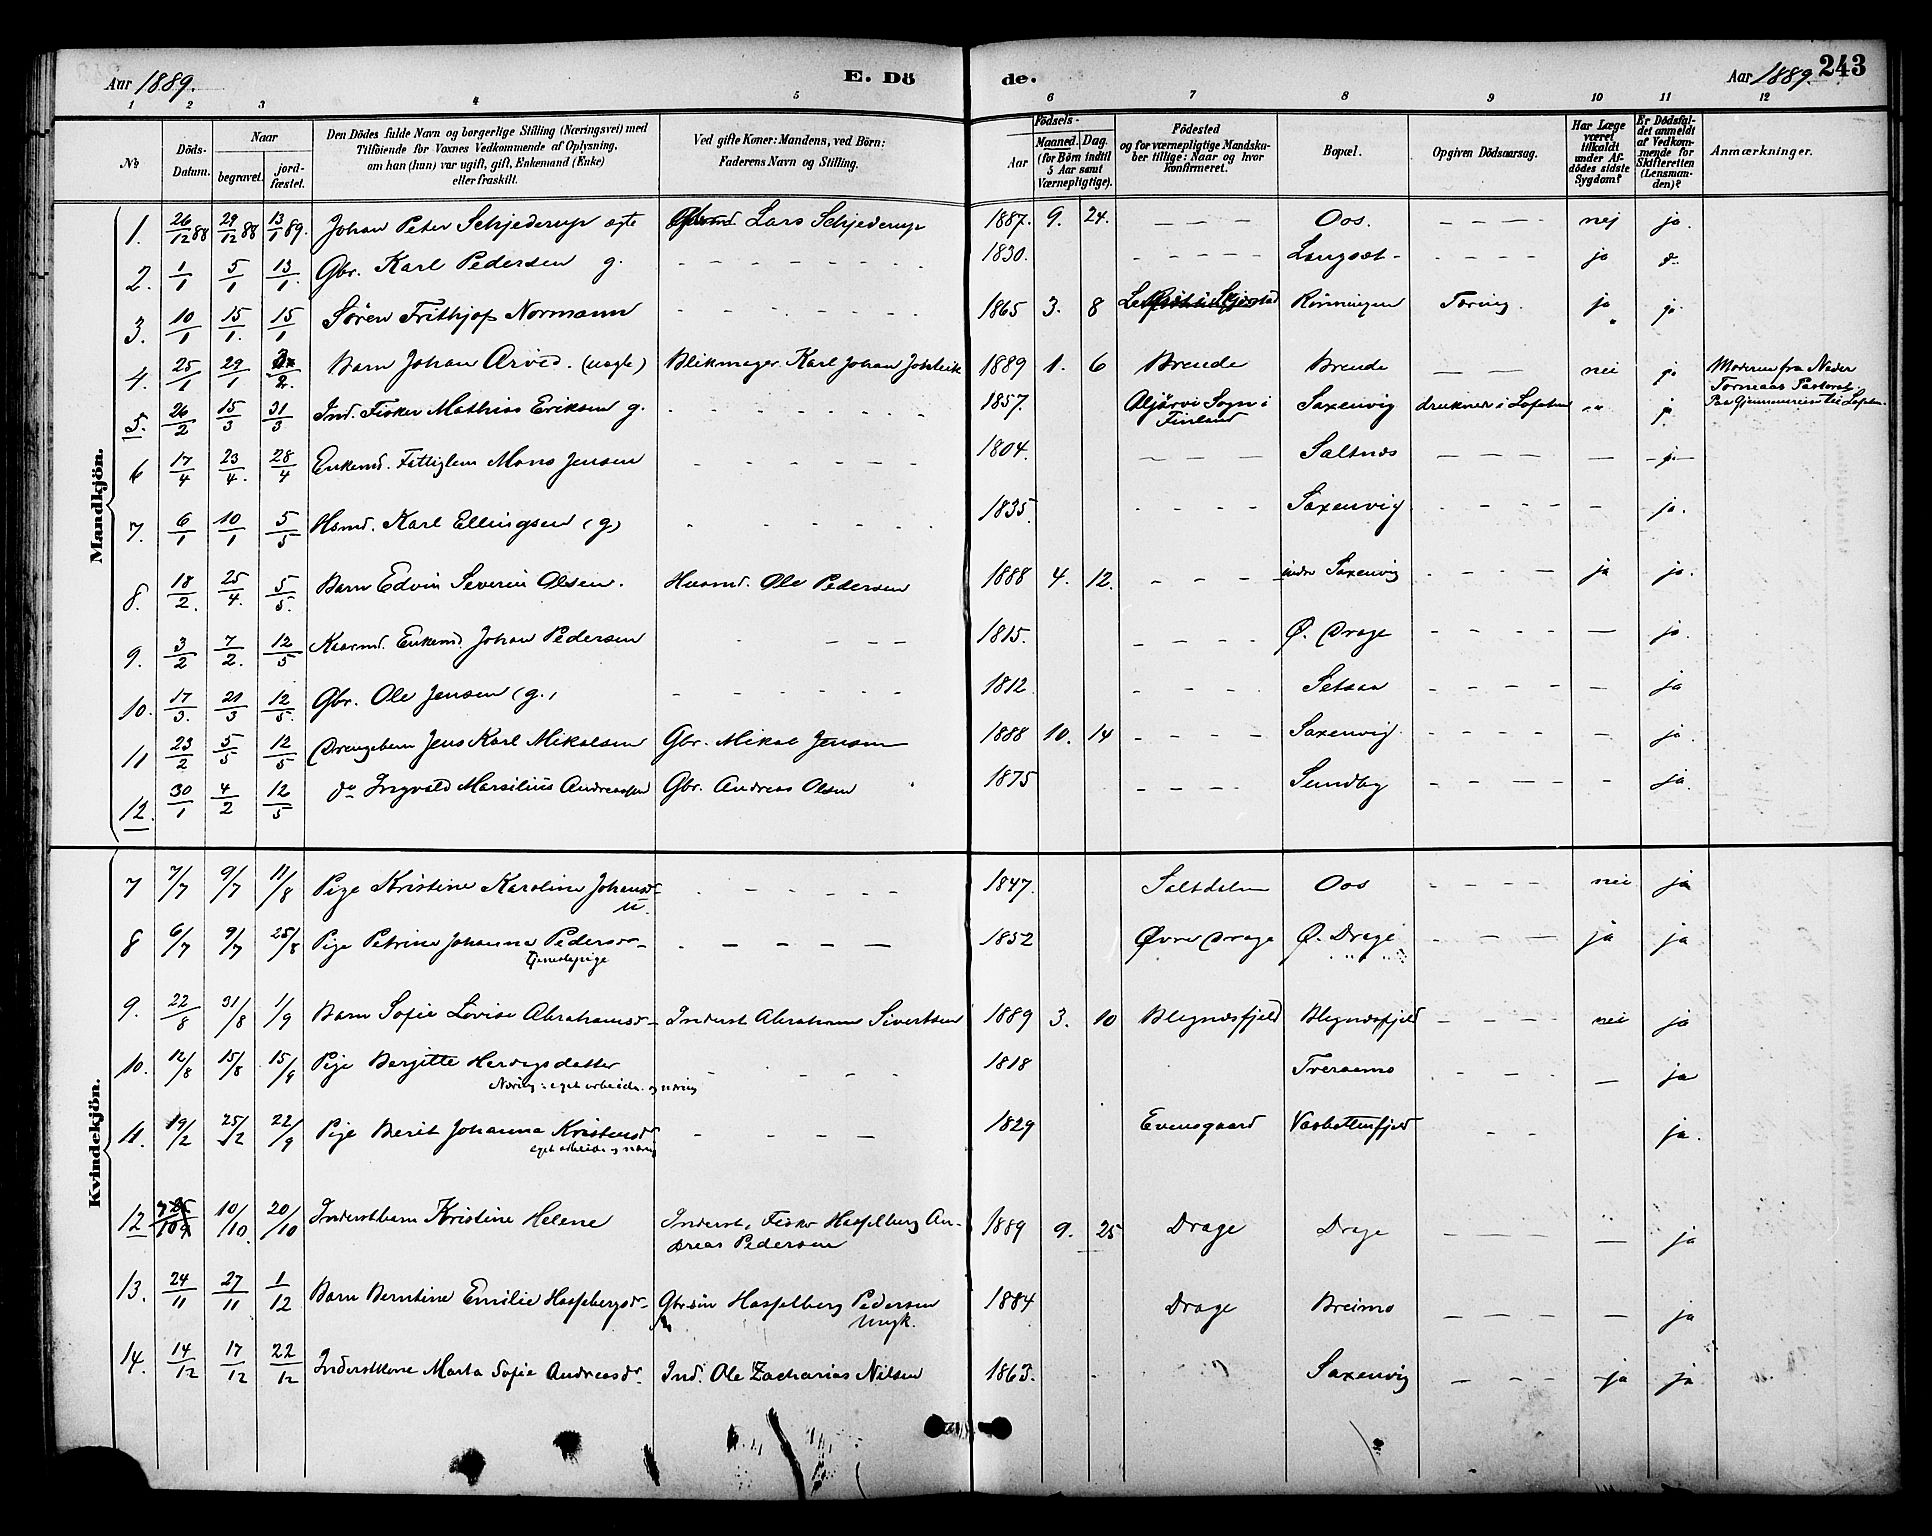 Aar 1889. E. Dö de. Aar 1889. 243
1 2 3 4 5 6 7 8 9 10 11 12
No
Döds-Datum.
Naar
begravet.
jord-fæstet.
Den Dödes fulde Navn og borgerlige Stilling (Næringsvei) med
Tilföiende for Voxnes Vedkommende af Oplysning,
om han (hun) var ugift, gift, Enkemand (Enke)
eller fraskilt.
Ved gifte Koner: Mandens, ved Börn:
Faderens Navn og Stilling.
Födsels-
Aar
Maaned. Dag.
(for Börn indtil
5 Aar samt
Værnepligtige).
Födested
og for værnepligtige Mandska-
ber tillige: Naar og hvor
Konfirmeret.
Bopæl.
Opgiven Dödsaarsag.
Har Læge
været
tilkaldt
under Af-
dödes sidste
Sygdom?
Er Dödsfal-
det anmeldt
af Vedkom-
mende for
Skifteretten
(Lensman-
den)?
Anmærkninger.
Mandkjön.
1. 26/12 88 29/12 88 13/1 89. Johan Peter Schjederup Lars Schjederup 1887. 9. 24. — — — Oos. — — — — nej ja.
2. 1/1 5/1 13/1. Gbr. Karl Pedersen g. - - - - - - - - 1830. - - - - - Langset - - - - - ja
3. 10/1 15/1. 15/1 Sören Frithjof Normann - - - - - - - - 1865 3. 8 Rönningen Tæring. ja ja.
4. 25/1 29/1 Barn Johan Arvid. (uægte) Blikmager Karl Johan 1889 1. 6 Brende Brende — — nei ja Moderen fra Neder
Torneaas Pastorat.
5. 26/2 15/3 31/3 Ind. Fisker Mathias Eriksen g. - - - - - - - - 1857. Aljärvi Sogn i Saxenvig druknede i Lofoten " ja. Paa Gjennemreise til Lofoten.
Finland
6 17/4 23/4. 28/4 Enkemd. Fattiglem Mons Jensen - - - - - - - 1804. — — — Saltnes — — — — — ja
7. 6/1 10/1 5/5 Hsmd. Karl Ellingsen (g) - - - - - - 1835. - - - - Saxenvig - - - - - ja.
8. 18/2. 25/4. 5/5. Barn Edvin Severin Olsen. Husmd. Ole Pedersen 1888 4. 12. - - - indre Saxenvig - - - - ja ja.
9. 3/2 7/2. 12/5 Kaarmd. Enkemd. Johan Pedersen - - - - 1815. - - - - Ø. Drage - - - - — ja.
10. 17/3. 21/3 12/5. Gbr. Ole Jensen (g.) - - - - - - 1812. - - - - Setsaa - - - - — ja
11 23/2 5/5 12/5 Drengebarn Jens Karl Mikalsen Gbr. Mikal Jensen 1888 10. 14 - - - - Saxenvig. - - - - - ja.
12. 30/1 4/2 12/5 do Ingvald Marsilius Andreassen Gbr. Andreas Olsen 1875 - - - - Sundby - - - - - ja.
Kvindekjön.
7 7/7 9/7 11/8 Pige Kristine Karoline Johansd. - - - - - - 1847. Saltdalen Oos - - - - nei ja
u.
8 6/7 9/7 25/8 Pige Petrine Johanna Pedersd. - — — — — 1852 Øvre Drage Ø. Drage - - - — ja ja
Tjenestepige
9. 22/8 31/8 1/9 Barn Sofie Lovise Abrahamsd. Inderst Abraham Sivertsen 1889 3. 10 Blegnesfjeld Blegnesfjeld - - - - nei ja
10. 12/8 15/8 15/9 Pige Bergitte Hervigsdatter - - - - 1818 Tveraamo - - - - — ja
Næring: eget arbeide og næring
11. 19/2 25/2 22/9 Pige Berit Johanna Kristensd. - - - — 1829 Evensgaard Vasbottenfjeld - - ja.
eget arbeide og næring
12 10/10. 20/10 Inderstbarn Kristine Helene Inderst, Fisker Hasselberg An- 1889 9. 25 Drage Drage - - - - — ja
dreas Pedersen
13. 24/11 27/11 1/12 Barn Berntine Emilie Hasselbergsd. Gbrsön Hasselberg Pedersen 1884 Drage Breimo - - - - — ja
14. 14/12 17/12 22/12 Inderstkone Marta Sofie Andreasd. Ind. Ole Zacharias Nilsen 1863. - Saxenvig - - - - ja ja